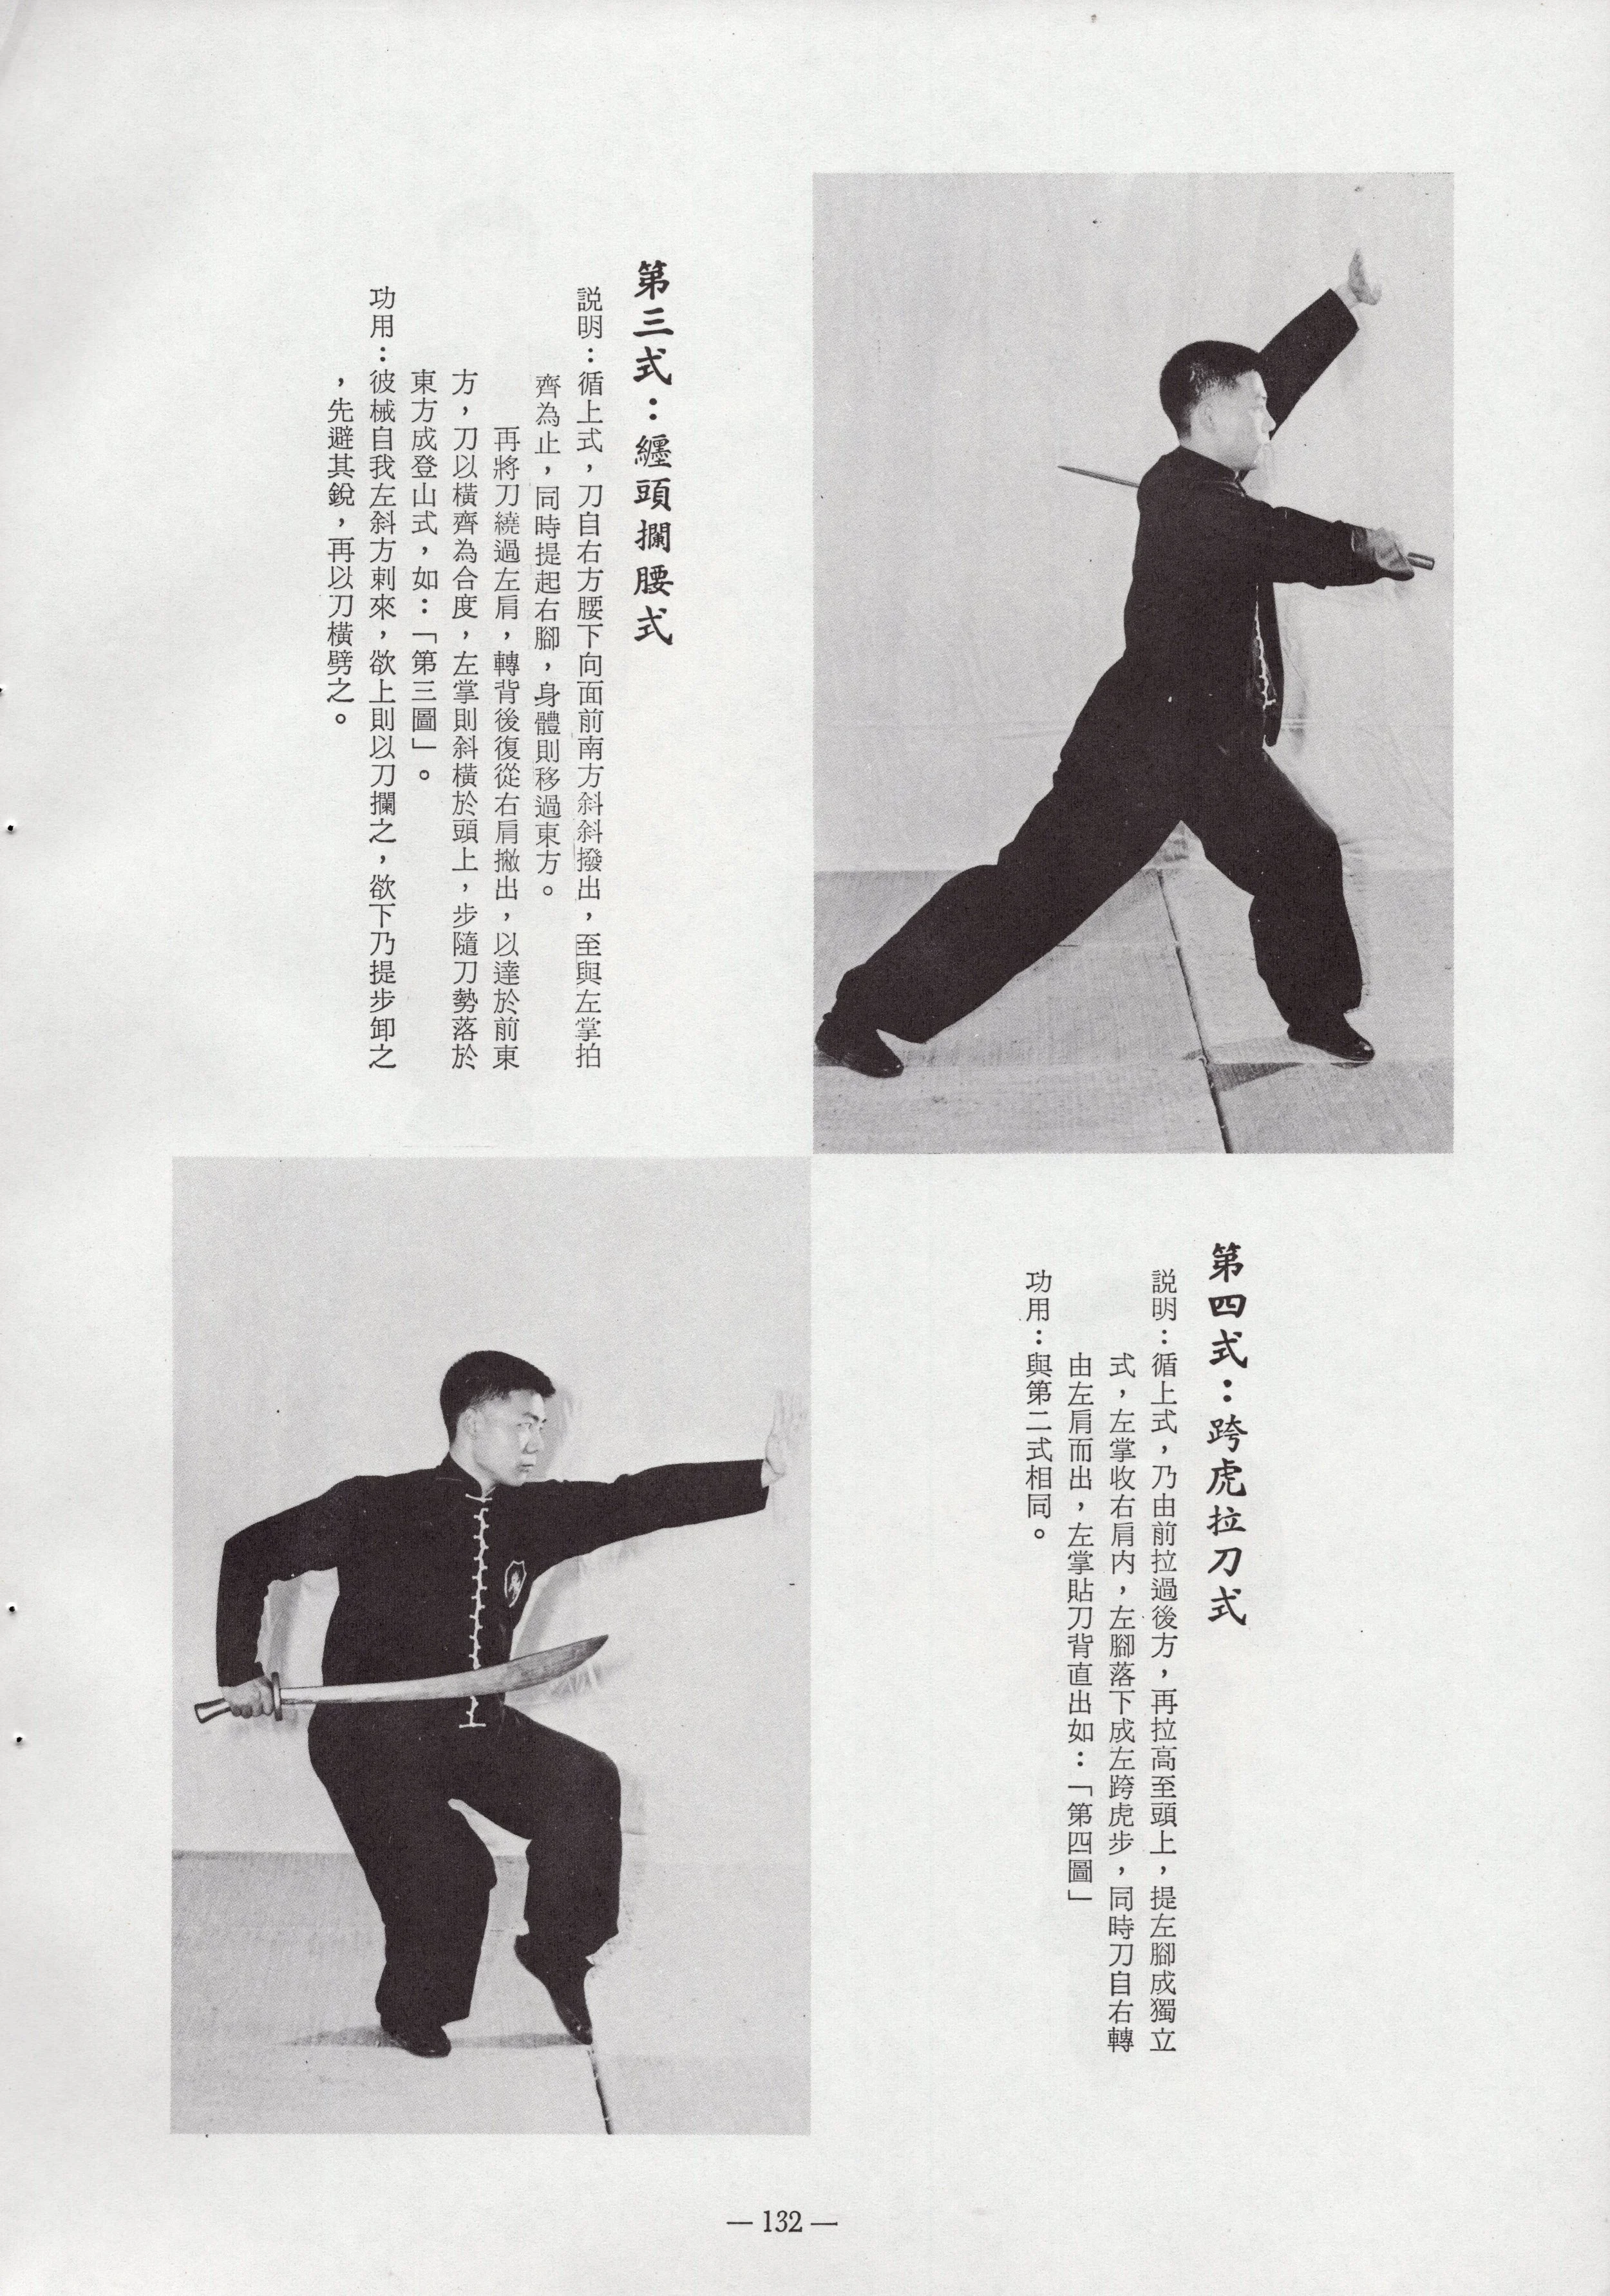 第三式：纏頭攔腰式
説明：循上式，刀自右方腰下向面前南方斜斜撥出，至與左掌拍
齊為止，同時提起右腳，身體則移過東方。
再將刀繞過左肩，轉背後復從右肩撇出，以達於前東
方，刀以橫齊為合度，左掌則斜橫於頭上，步隨刀勢落於
東方成登山式，如：「第三圖」。
功用：彼械自我左斜方刺來，欲上則以刀攔之，欲下乃提步卸之
，先避其銳，再以刀橫劈之。
第四式：跨虎拉刀式
説明：循上式，乃由前拉過後方，再拉高至頭上，提左腳成獨立
式，左掌收右肩内，左腳落下成左跨虎步，同時刀自右轉
由左肩而出，左掌貼刀背直出如：「第四圖」
功用：與第二式相同。
— 132 —